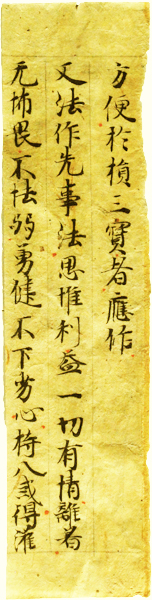 方便於損三寶者應作
又法作先事法思惟利益一切有情離諸
无怖畏不怯弱勇健不下劣心持八戒得灌